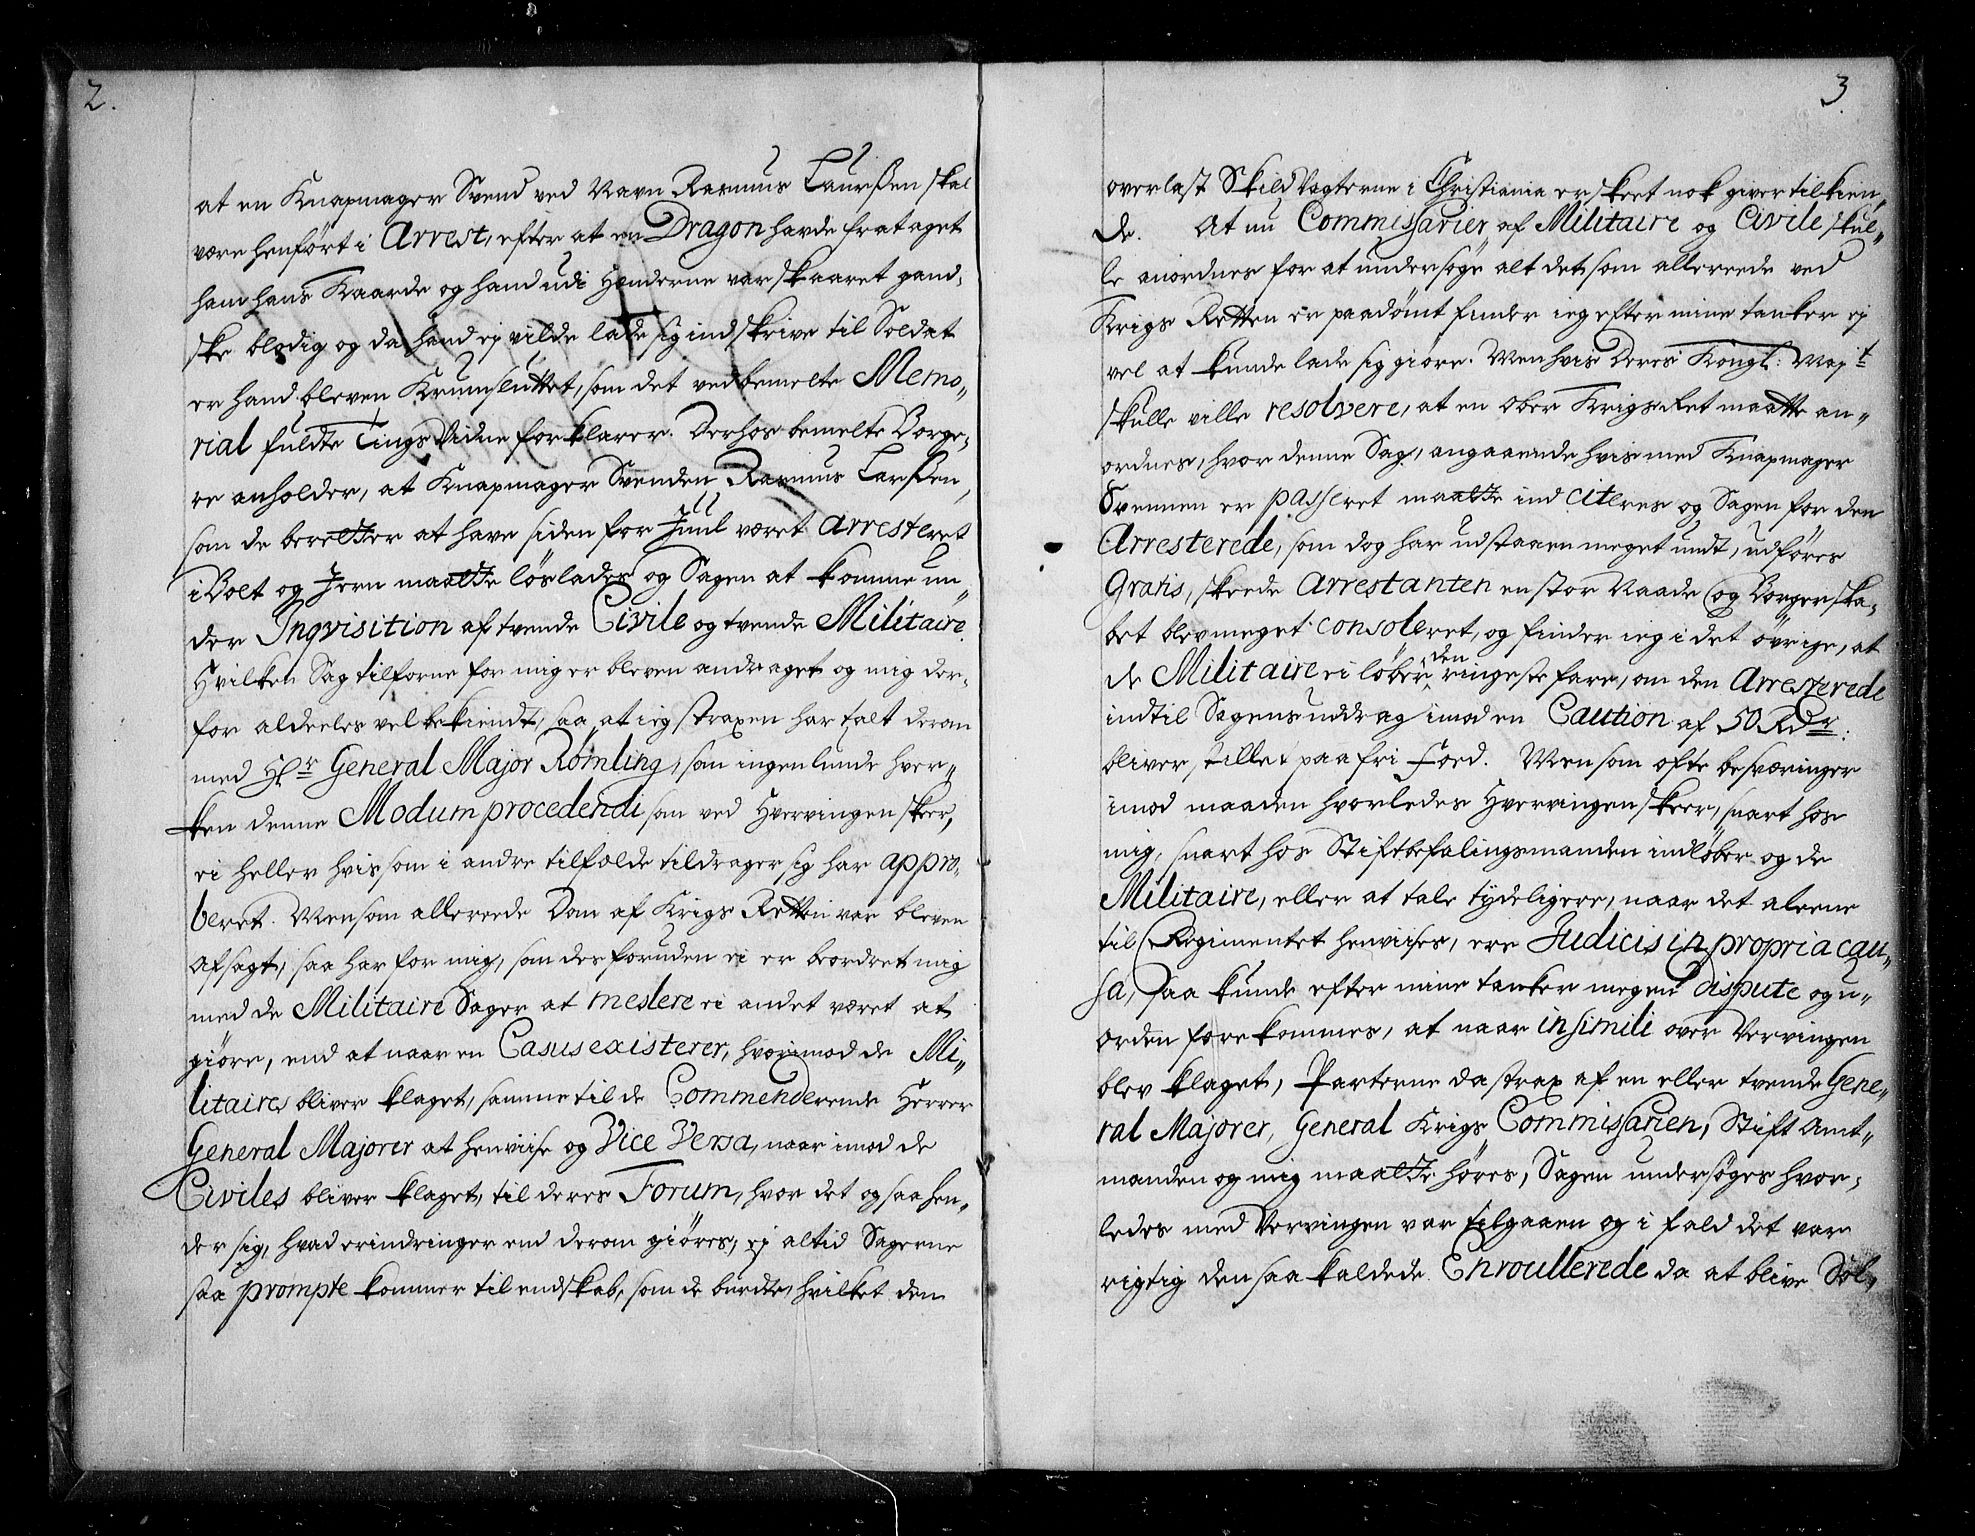 2.
at en Knapmager Svend ved Navn Rasmus Laurßen skal
være henført i Arrest, efter at en Dragon havde frataget
ham hans Kaarde og hand udi Henderne var skaaret gand„
ske blodig og da hand ej vilde lade sig indskrive til Soldat
er hand bleven Krumsluttet, som det ved bemelte Memo„
rial fuldte Tings Vidne forklarer. Derhos bemelte Borge„
re anholder, at Knapmager Svenden Rasmus Larßen,
som de beretter at have siden for Juul været Arresteret
i Bolt og Jern maatte løslades og Sagen at komme un„
der Inqvisition af tvende Civile og tvende Militaire.
Hvilken Sag tilforne for mig er bleven andraget og mig der„
for aldeeles vel bekiendt, saa at ieg straxen har talt derom
med Hr. General Major Römling, som ingenlunde hver„
ken denne Modum procedendi som ved Hvervingen skeer,
ei heller hvis som i andre tilfælde tildrager sig har appro„
beret. Men som allereede Dom af Krigs Retten var bleven
afsagt, saa har for mig, som desforuden ei er beordret mig
med de Militaire Sager at meslere ei andet været at
giøre, end at naar en Casus existerer, hvorimod de Mi„
litaires bliver klaget, samme til de Commenderende Herrer
General Majorer at henviise og Vice Versa, naar imod de
Civiles bliver klaget, til deres Forum, hvor det og saa hen„
der sig, hvad erindringer end derom giøres, ej altid Sagerne
saa prompte kommer til endskab, som de burdte, hvilket den
3
overlast Skild Vagterne i Christiania er skeet nok giver tilkien„
de. At nu Commissarier af Militaire og Civile skul„
le anordnes for at undersøge alt det som allereede ved
Krigs Retten er paadømt finder ieg efter mine tanker ej
vel at kunde lade sig giøre. Men hvis Deres Kongl: Mayt
skulle ville resolvere, at en ober Krigs Ret maatte an„
ordnes, hvor denne Sag, angaaende hvis med Knapmager
Svennen er passeret maatte ind citeres og Sagen for den
Arresterede, som dog har udstaaen meget undt, udføres
Gratis, skeede Arrestanten en stor Naade og Borgerska„
bet blev meget consoleret, og finder ieg i det øvrige, at
de Militaire ei løber den ringeste fare, om den Arresterede
indtil Sagens uddrag imod en Caution af 50 Rdr:
bliver stillet paa fri Foed. Men som ofte besværinger
imod maaden hvorledes Hvervingen skeer, snart hos
mig, snart hos Stiftbefalingsmanden indløber og de
Militaire, eller at tale tydeligere, naar det aleene
til Regimentet henviises, ere Judicis in propria cau„
sa, saa kunde efter mine tanker megen dispute og u„
orden forekommes, at naar in simili over Vervingen
blev klaget, Parterne da strax af en eller tvende Gene„
ral Majorer, General Krigs Commissarien, Stift Amt„
manden og mig maatte høres, Sagen undersøges hvor„
ledes med Vervingen var tilgaaen og i fald det var
rigtig den saa kaldede Enroullerede da at blive Sol„